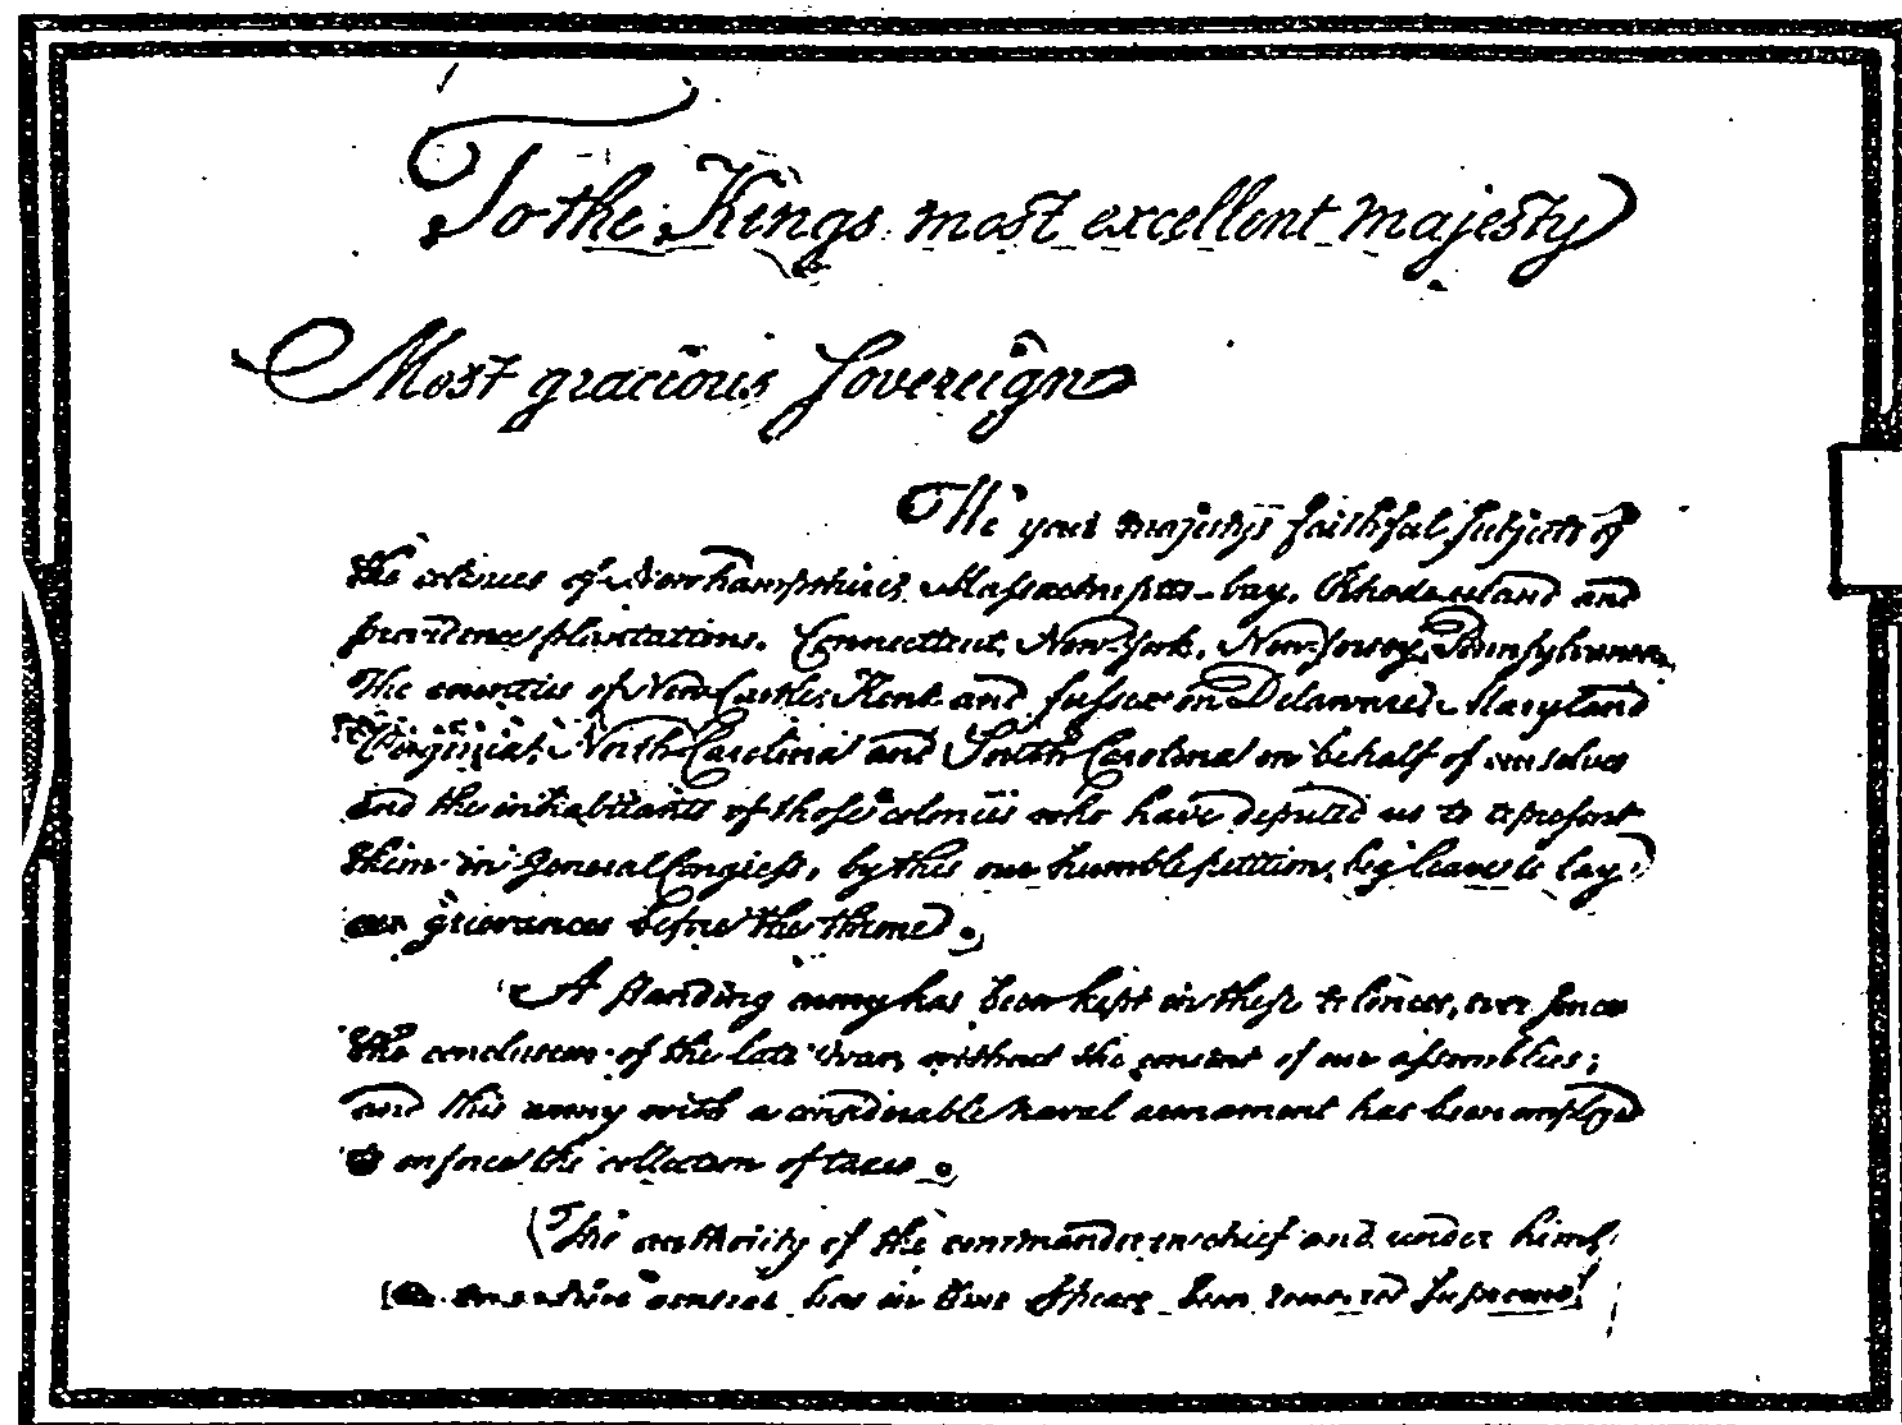 To the Kings most excellent majesty
Most gracious sovereign
We your majestys faithful subjects of
the colonies of Newhampshire, Massachusetts-bay, Rhode island and
providence plantations, Connecticut, New-York, New-Jersey, Pennsylvania,
The counties of New Castle, Kent and sussex on Delaware, Maryland
Virginia, North-Carolina and South Carolina on behalf of ourselves
and the inhabitants of those colonies who have deputed us to represent
them in General Congress, by this our humble petition, beg leave to lay
our grievances before the throne.
A standing army has been kept in these colonies, ever since
the conclusion of the late war, without the consent of our assemblies;
and this army with a considerable naval armament has been employed
to enforce the collection of taxes.
The authority of the commander in chief and under him
general has in time of peace been rendered supreme